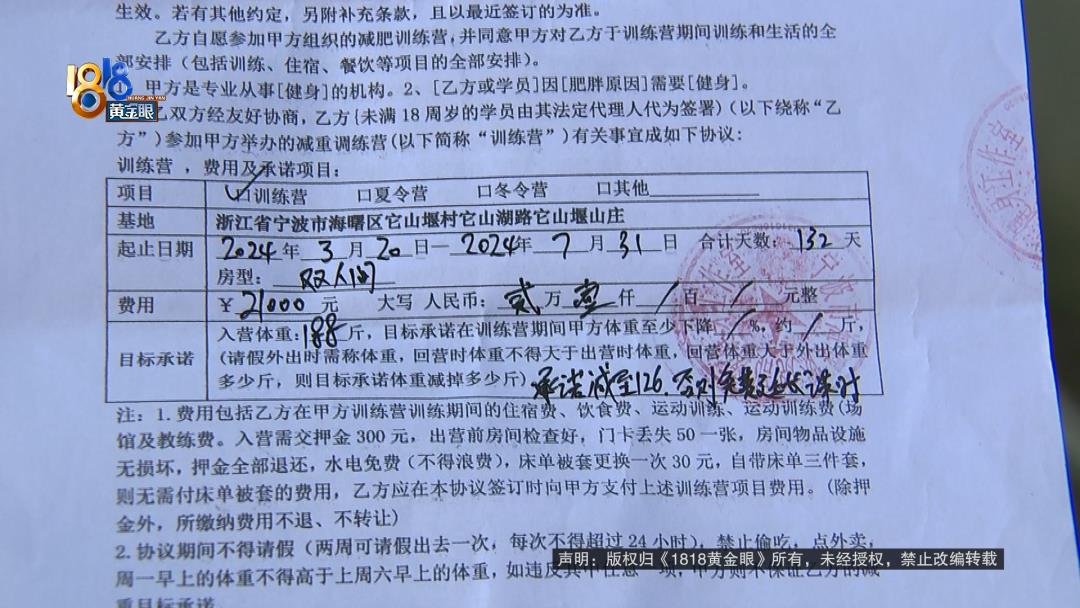 生效。若有其他约定，另附补充条款，且以最近签订的为准。
乙方自愿参加甲方组织的减肥训练营，并同意甲方对乙方于训练营期间训练和生活的全
部安排（包括训练、住宿、餐饮等项目的全部安排）。
1、甲方是专业从事[健身]的机构。2、[乙方或学员]因[肥胖原因]需要[健身]。
乙双方经友好协商，乙方{未满18周岁的学员由其法定代理人代为签署)（以下绕称“乙
方”)参加甲方举办的减重调练营(以下简称“训练营”)有关事宣成如下协议:
训练营 ，费用及承诺项目:
项目 ☑训练营 口夏令营 口冬令营 口其他
基地 浙江省宁波市海曙区它山堰村它山湖路它山堰山庄
起止日期 2024年 3月20日—2024年 7月31日 合计天数: 132 天
房型: 双人间
费用 ¥21000 元 大写 人民币: 贰万壹仟/百/元整
目标承诺 入营体重:188斤，目标承诺在训练营期间甲方体重至少下降/%，约/斤，
(请假外出时需称体重，回营时体重不得大于出营时体重，回营体重大于外出体重
多少斤，则目标承诺体重减掉多少斤) 承诺减至126，否则免费延长课时
注: 1.费用包括乙方在甲方训练营训练期间的住宿费、饮食费、运动训练、运动训练费(场
馆及教练费。入营需交押金300元，出营前房间检查好，门卡丢失50一张，房间物品设施
无损坏，押金全部退还，水电免费（不得浪费），床单被套更换一次30元，自带床单三件套，
则无需付床单被套的费用，乙方应在本协议签订时向甲方支付上述训练营项目费用。(除押
金外，所缴纳费用不退、不转让)
2.协议期间不得请假（两周可请假出去一次，每次不得超过24小时），禁止偷吃，点外卖，
周一早上的体重不得高于上周六早上的体重，如违反其中任意一项，甲方则不保证乙方的减
重目标承诺。
1818
HUANG JIN YAN
黄金眼
声明：版权归《1818黄金眼》所有，未经授权，禁止改编转载